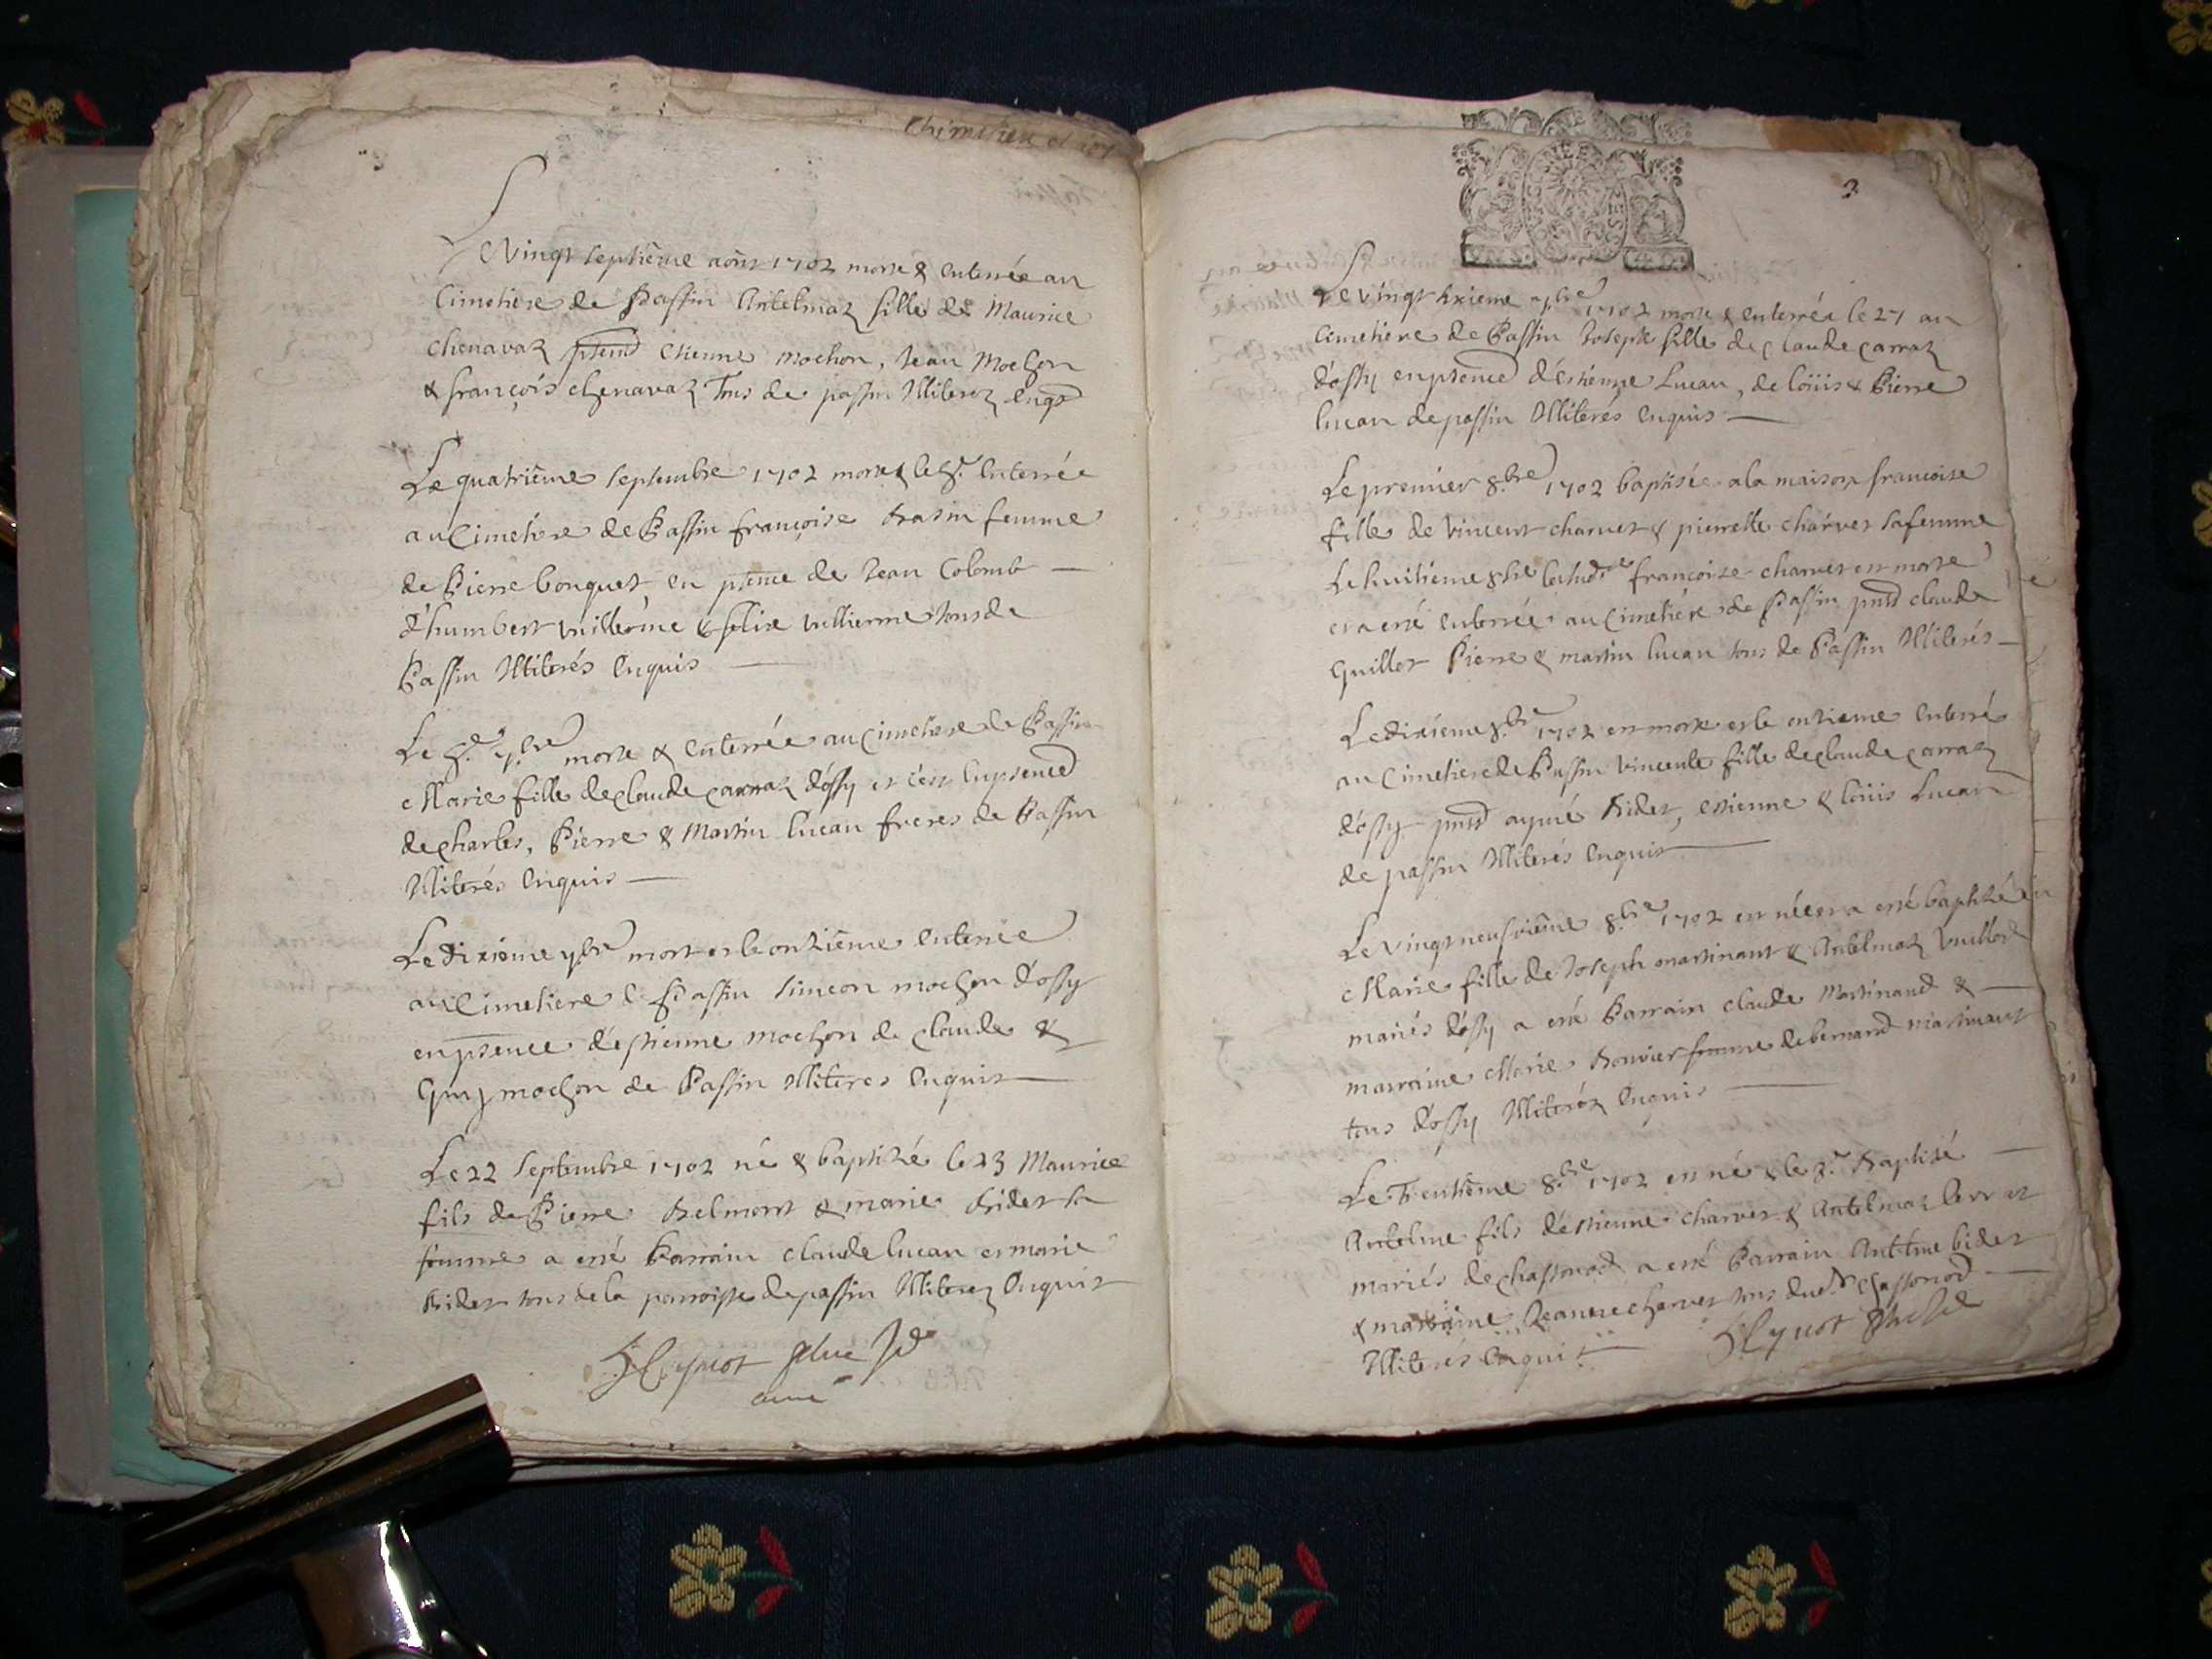 Le Vingt septième aoust 1702 morte & enterrée au
Cimetiere de Passin Antelmaz fille de Maurice
chenavaz Etienne mochon, Jean Mochon
& françois chenavaz Tous de passin Illiterez enqs
Le quatrième septembre 1702 morte & le 5.e enterrée
au Cimetiere de Passin françoise femme
de Pierre bouquet, en pnce de Jean Colomb
d'humbert vuillerme & felix vullierme tous de
Passin Illiterés Enquis
Le 5.e 7.bre morte & enterrée au Cimetiere de Passin
Marie fille de claude carraz d'ossy et c'est en psence
de charles, Pierre & Martin lucan freres de Passin
Illiterés Enquis
Le dixième 7bre mort et le onzième enterrée
au Cimetiere de Passin simeon mochon d'ossy
en psence d'estienne mochon de claude &
Guy mochon de Passin Illiteres Enquis
Le 22 septembre 1702 né & baptizé le 23 Maurice
fils de Pierre Belmont & marie Bidet sa
femme a esté Parrain claude lucan et marie
Bidet tous de la parroisse de passin Illiterez Enquis
3
Le vingt sixieme 7bre 1702 morte & enterrée le 27 au
Cimetiere de Passin Joseph fille de claude carraz
d'ossy en psence d'estienne Lucan, de loüis & Pierre
lucan de passin Illiterés enquis
Le premier 8.bre 1702 baptisée a la maison francoise
fille de vincent charvet & pierrette charvet sa femme
Le huitieme 8bre francoise charvet est morte
et a esté enterrée au Cimetiere de Passin pnts claude
Guillot Pierre & martin lucan tous de Passin Illiterés
Le dixième 8.bre 1702 est morte et le onzieme enterré
au Cimetiere de Passin vincente fille de claude carraz
d'ossy pnts aymé Bidet, estienne & loüis Lucan
de passin Illiterés Enquis
Le vingt neufvième 8.bre 1702 est née et a esté baptizé
Marie fille de Joseph martinant & Antelmaz
mariés d'ossy a esté Parrain claude Martinand &
marraine Marie Bouvier femme de bernard martinant
tous d'ossy Illiteréz Enquis
Le Trentième 8.bre 1702 est né & le Baptisé
Antelme fils d'estienne charvet & Antelmaz
mariés de chassonod a esté Parrain Antelme bidet
& marraine Jeanne charvet tous dud. chassonod
Illiterés Enquis